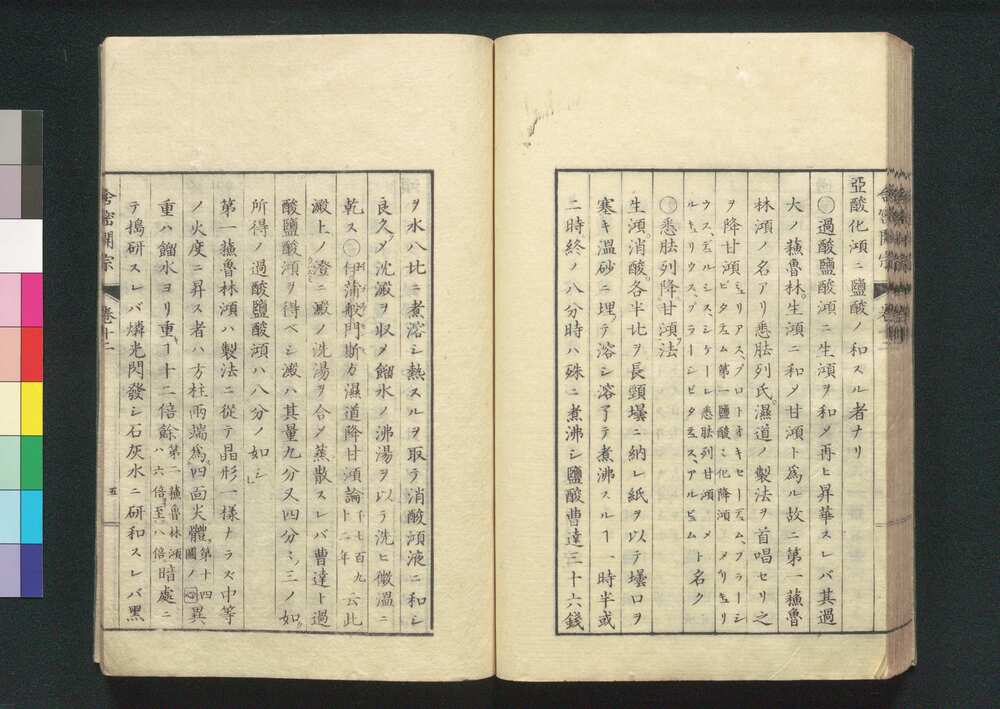 亞酸化澒ニ鹽酸ノ和スル者ナリ
過酸鹽酸澒ニ生澒ヲ和メ再ヒ昇華スレバ其過
大ノ蘓魯林生澒ニ和メ甘澒ト為ル故ニ第一蘓魯
林澒ノ名アリ悉胠列氏濕道ノ製法ヲ首唱セリ之
ヲ降甘澒
ト名ク
悉胠列降甘澒法
生澒消酸各半比ヲ長頸壜ニ納レ紙ヲ以テ壜口ヲ
塞キ溫砂ニ埋テ溶シ溶了テ煮沸スルヿ一時半或
二時終ノ八分時ハ殊ニ煮沸シ鹽酸曹達三十六錢
舎密開宗 卷十二
ヲ水八比ニ煮溶シ熱スルヲ取テ消酸澒液ニ和シ
良久メ沈澱ヲ収メ餾水ノ沸湯ヲ以テ洗ヒ微溫ニ
乾ス 伊蒲般門斯カ濕道降甘澒論 千七百九十二年 云此
澱上ノ澄ニ澱ノ洗湯ヲ合メ蒸散スレバ曹達ト過
酸鹽酸澒ヲ得ベシ澱ハ其量九分又四分ミ三ノ如
所得ノ過酸鹽酸澒ハ八分ノ如シ
第一蘓魯林澒ハ製法ニ從テ晶形一樣ナラズ中等
ノ火度ニ昇ス者ハ方柱兩端為四面尖體 第十四圖ノ 異
重ハ餾水ヨリ重キヿ十二倍餘 第二蘓魯林澒ハ六倍至八倍 暗處ニ
テ搗研スレバ燐光閃發シ石灰水ニ研和スレバ黒
舎密開宗 卷十二 五